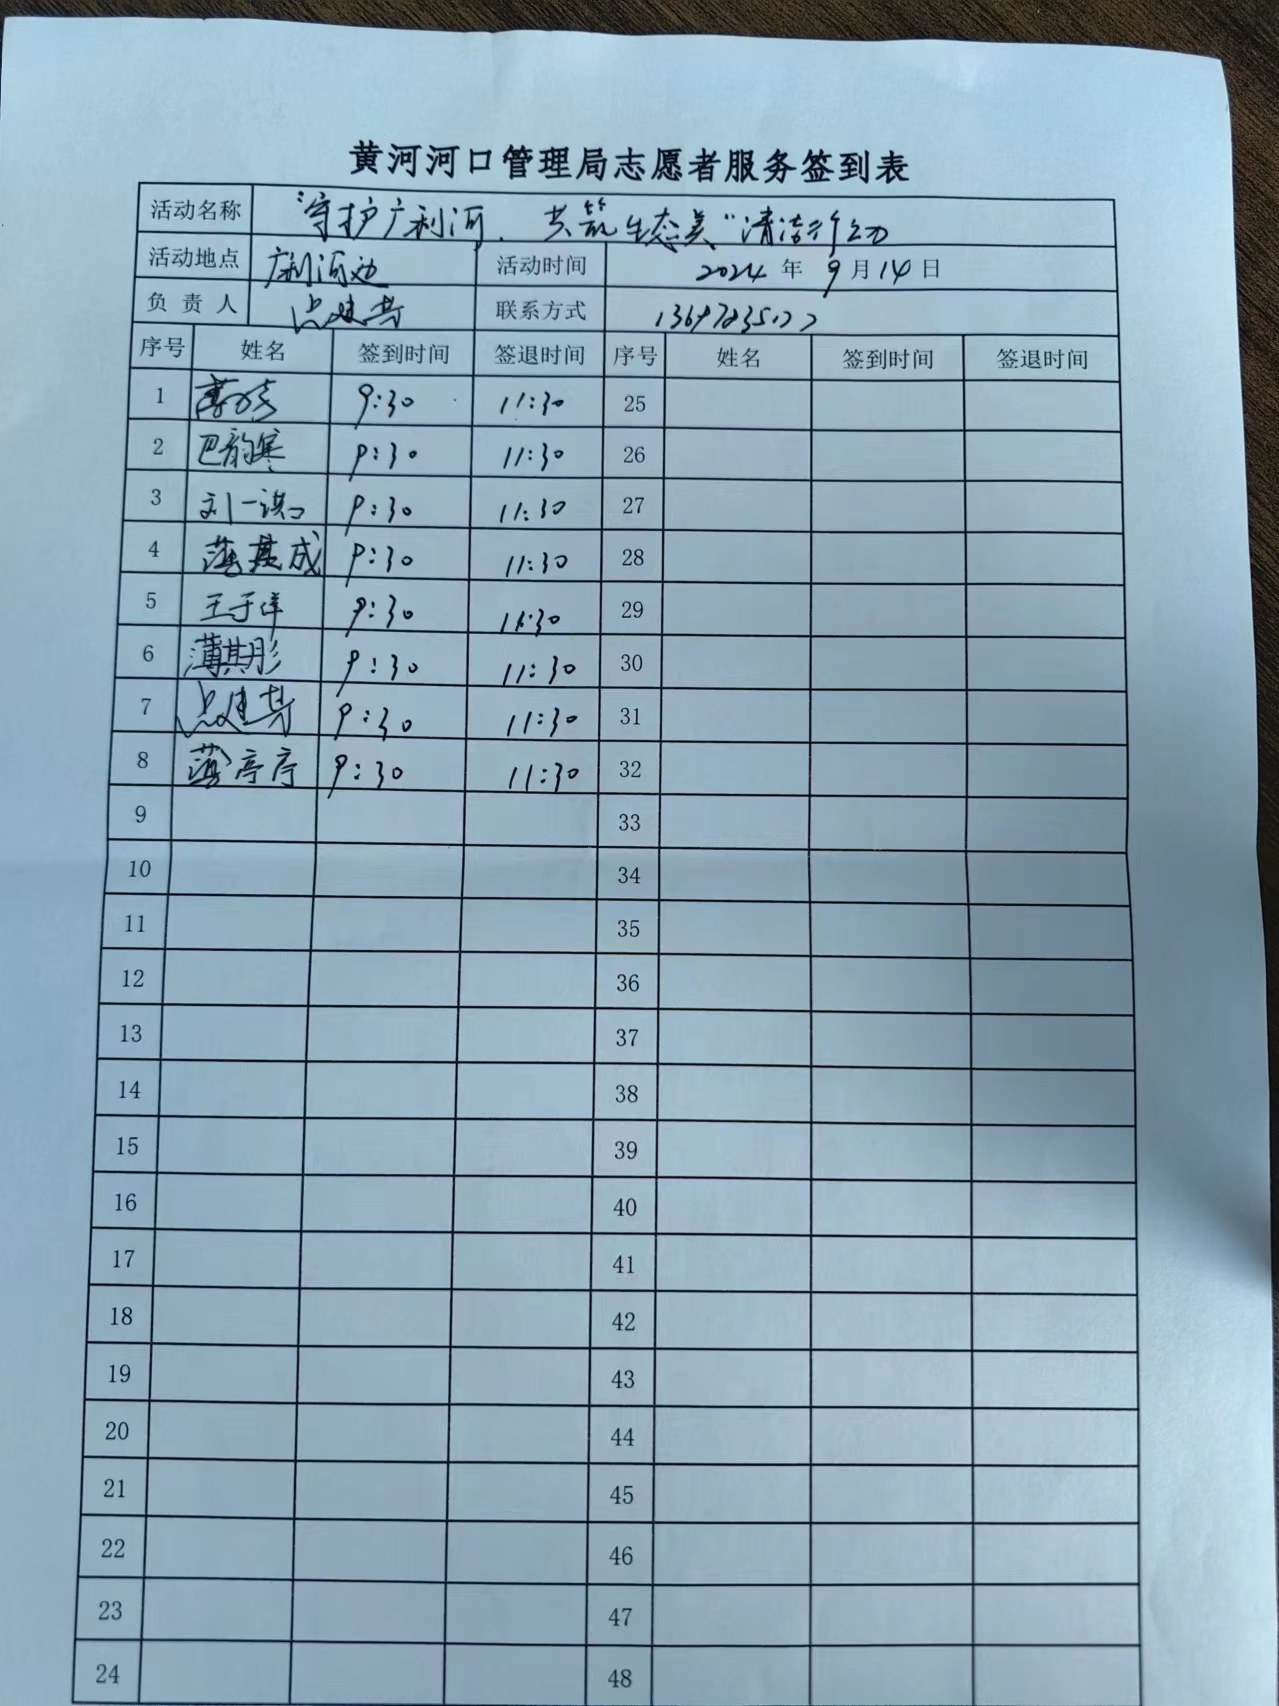 黄河河口管理局志愿者服务签到表
活动名称 "守护广利河、共筑生态美"清洁行动
活动地点 广利河边 活动时间 2024 年 9 月 14 日
负责人 联系方式
序号 姓名 签到时间 签退时间 序号 姓名 签到时间 签退时间
1 9:30 11:30 25
2 巴韵寒 9:30 11:30 26
3 刘一 9:30 11:30 27
4 薄其成 9:30 11:30 28
5 王于洋 9:30 11:30 29
6 薄其彤 9:30 11:30 30
7 9:30 11:30 31
8 薄亭亭 9:30 11:30 32
9 33
10 34
11 35
12 36
13 37
14 38
15 39
16 40
17 41
18 42
19 43
20 44
21 45
22 46
23 47
24 48